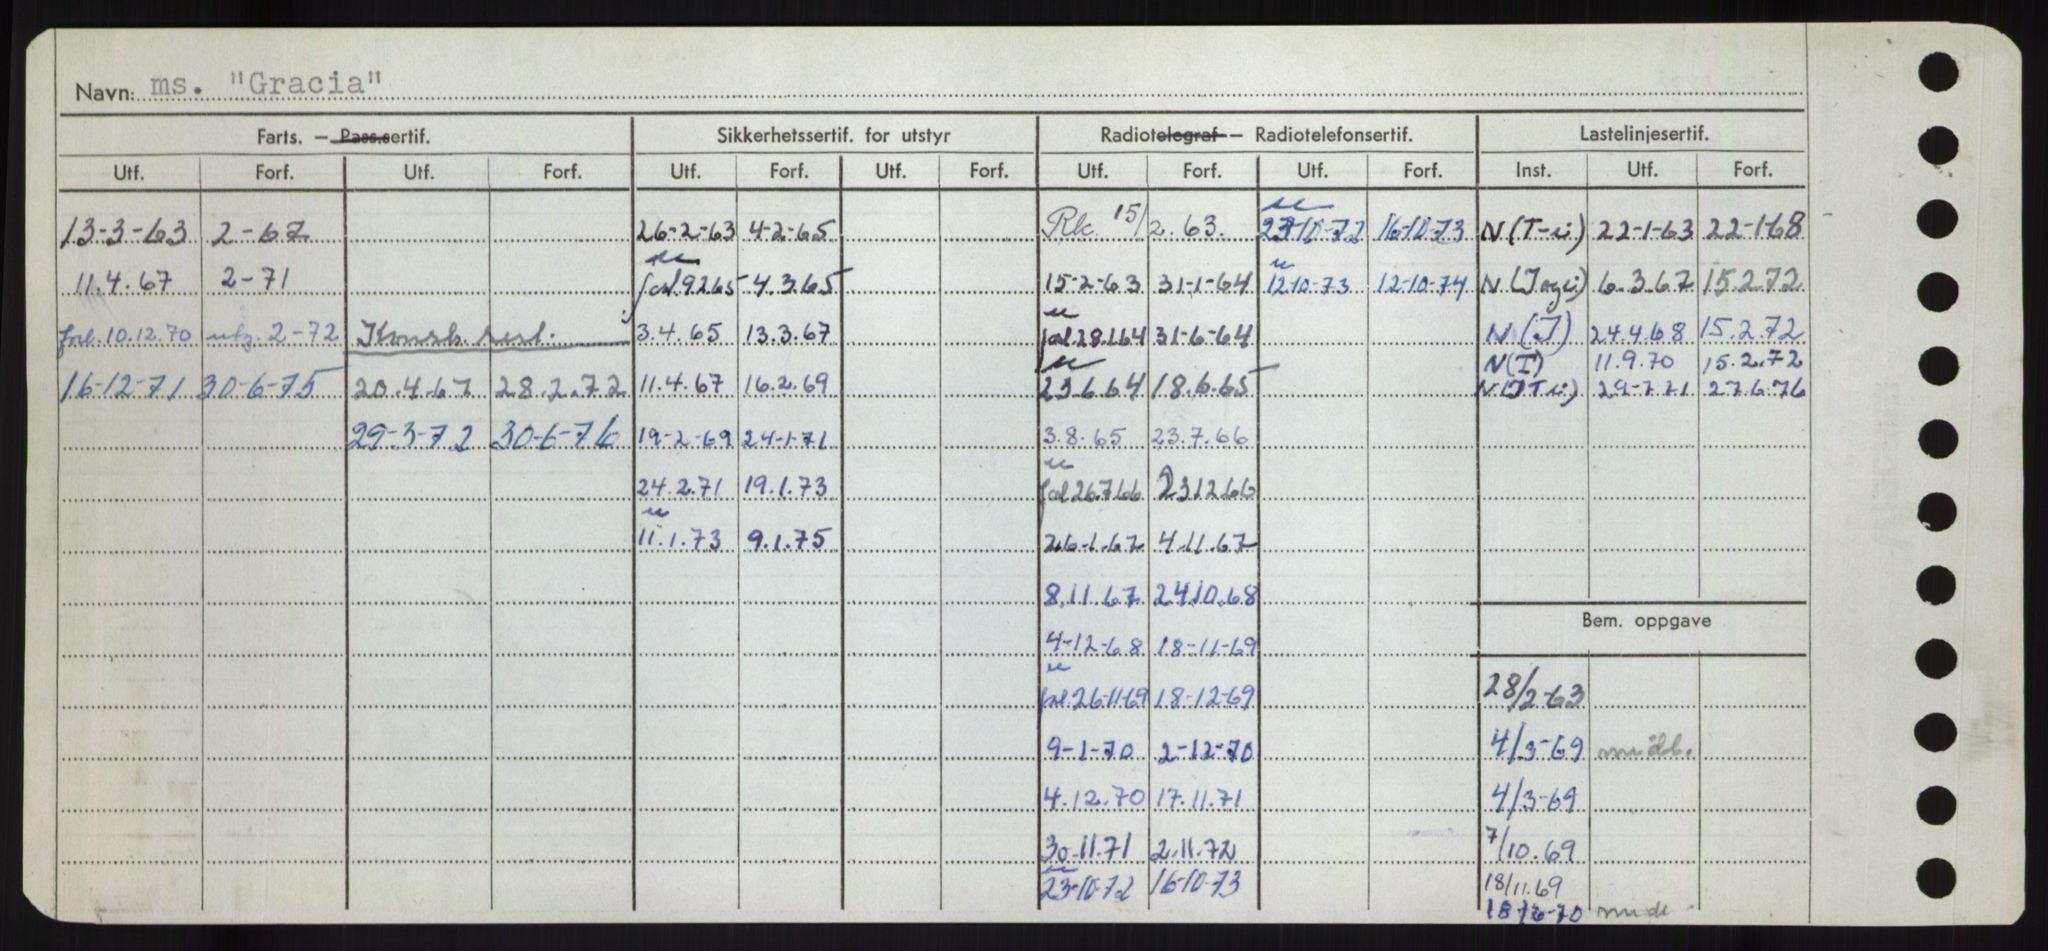 Navn: ms. "Gracia"
Farts. — Pass.sertif. Sikkerhetssertif. for utstyr Radiotelegraf — Radiotelefonsertif. Lastelinjesertif.
Utf. Forf. Utf. Forf. Utf. Forf. Utf. Forf. Utf. Forf. Utf. Forf. Inst. Utf. Forf.
13-3-63 2-67 26-2-63 4-2-65 Rk. 15/2.63. 23-10-72 16-10-73 N(T-i) 22-1-63 22-1-68
11.4.67 2-71 9265 4.3.65 15-2-63 31-1-64 12-10-73 12-10-74 6.3.67 15.2.72
forl. 10.12.70 2-72 3.4.65 13.3.67 31-6-64 N(J) 24.4.68 15.2.72
N(I) 11.9.70 15.2.72
16-12-71 30-6-75 20.4.67 28.2.72 11.4.67 16.2.69 23.6.64 18.6.65 29-7-71 27.6.76
29-3-72 30-6-76 19-2-69 24-1-71 3.8.65 23.7.66
24.2.71 19.1.73 26766 231266
11.1.73 9.1.75 26-1-67 4.11.67
8.11.67 2410.68
Bem. oppgave
4-12-68 18-11-69
forl. 26-11-69 18-12-69 28/2-63
9-1-70 2-12-70 4/3-69
4.12.70 17.11.71 4/3-69
30.11.71 2.11.72 7/10.69
23-10-72 16-10-73 18/11.69
18/6-70